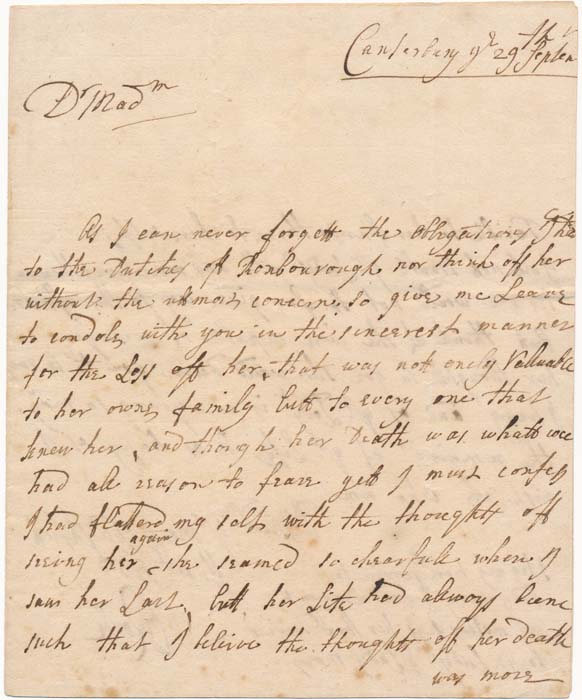 Canterbury ye 29th Septem
Dr Madm
As I can never forgett the obligations I
to the Dutches off Ronbourough nor think off her
without the utmost concern, so give me Leave
to condole with you in the sincerest manner
for the Loss off her, that was nott onely Valuable
to her owne family butt to every one that
knew her, and though her Death was whatt wee
had all reason to feare yett I must confess
I had flatterd my self with the thoughts off
seeing her again she seamed so chearfull when I
saw her Last, butt her Life had always beene
such that I believe the thoughts off her death
was more